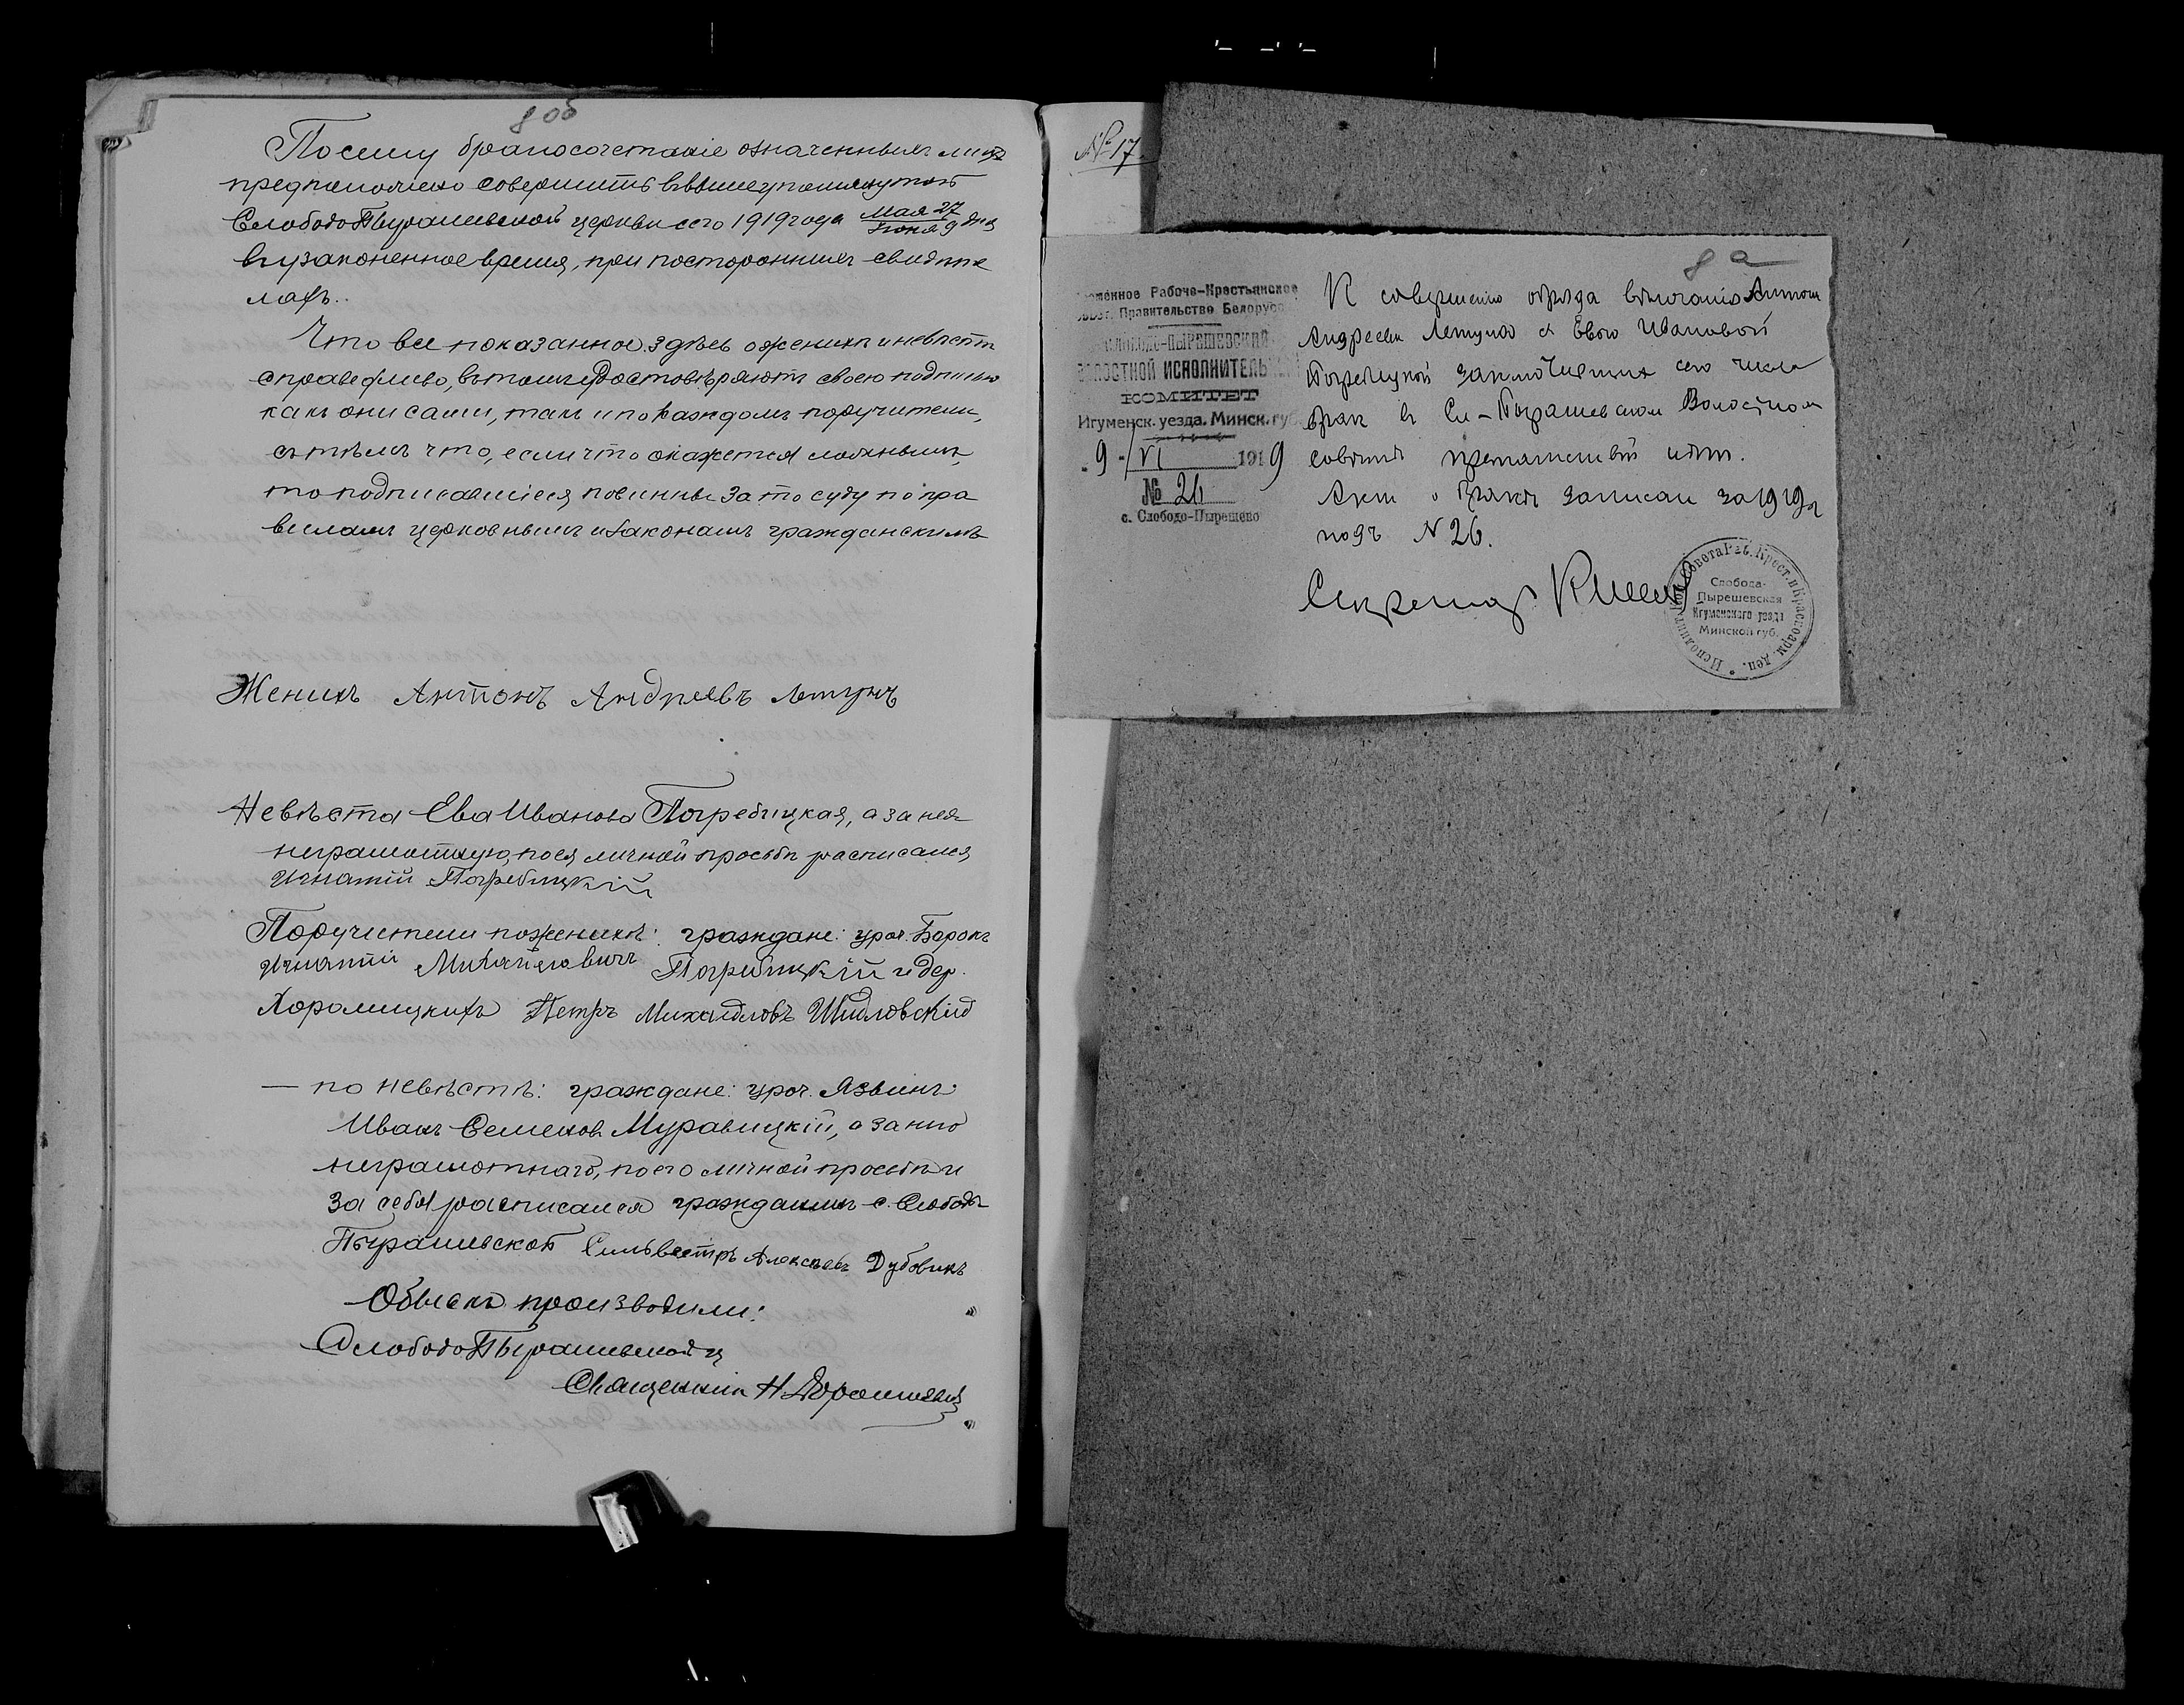 8 об
Посему бракосочетаніе означенныхъ лицъ
предположено совершить въ вышеупомянутой
СлободоПырашевской церкви сего 1919 года Мая 27 / Іюня 9 дня
въ узаконенное время, при постороннихъ свидѣте
ляхъ.
Что все показанное здѣсь о женихѣ и невѣстѣ
справедливо, въ томъ удостовѣряютъ своею подписью
какъ они сами, такъ и по каждомъ поручители,
съ тѣмъ что, если что окажется ложнымъ,
то подписавшіеся повинны за то суду по пра
виламъ церковнымъ и законамъ гражданскимъ
Женихъ Антонъ Андреевъ Летунъ
Невѣста Ева Иванова Погребицкая, а за нея
неграмотную, по ея личной просьбѣ росписался
Игнатій Погребицкій
Поручители по женихѣ: граждане: уроч. Борокъ
Игнатій Михайловичъ Погребицкій и дер.
Хоромицкихъ Петръ Михайловъ Шидловскій
— по невѣстѣ: граждане: уроч. Язвинъ
Иванъ Семеновъ Муравицкій, а за него
неграмотнаго, по его личной просьбѣ и
за себя росписался гражданинъ с. Слободы
Пырашевской Сильвестръ Алексѣевъ Дубовикъ
Обыскъ производили:
СлободоПырашевской ц
Священникъ Н.
№ 17.
8 а
Рабоче-Крестьянское
Правительство Белорусс
СЛОБОДО-ПЫРЕШЕВСКИЙ
ВОЛОСТНОЙ ИСПОЛНИТЕЛЬ
КОМИТЕТ
Игуменск. уезда, Минск. губ.
9 / VI 1919
№ 26
с. Слободо-Пырешево
К совершенію обряда вѣнчанія Антона
Андреева Летуна с Евою Ивановой
Погребицкой заключившим сего числа
брак в Сл-Пырашевском Волостном
совѣтѣ препятствій нѣт.
Акт о бракѣ записан за 1919 г
подъ N 26.
Секретарь
Исполнит. Ком. Совета Раб. Крест. и Красноарм. деп.
Слобода-
Пырешевская
Игуменского уезда
Минской губ.